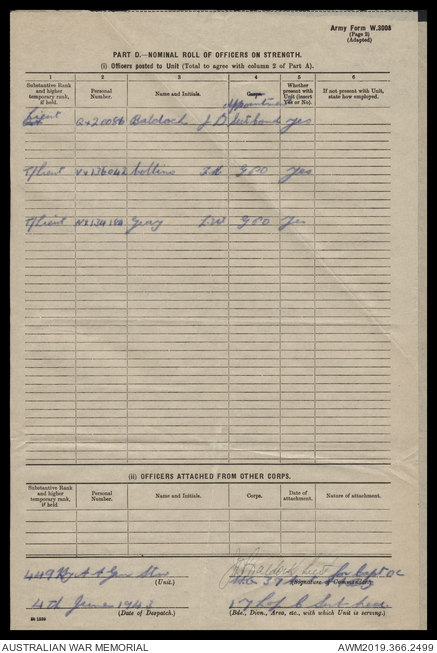 Army Form W.3008
(Page 3)
(Adapted)
PART D.—NOMINAL ROLL OF OFFICERS ON STRENGTH.
(i) Officers posted to Unit (Total to agree with column 2 of Part A).
1 2 3 4 5 6
Substantive Rank and higher temporary rank, if held. Personal Number. Name and Initials. Appointment Whether present with Unit (insert Yes or No). If not present with Unit, state how employed.
Lieut J D yes
T/Lieut Collins GPO Yes
T/Lieut NX134184 Geary L.W GPO Yes
(ii) OFFICERS ATTACHED FROM OTHER CORPS.
Substantive Rank and higher temporary rank, if held Personal Number. Name and Initials. Corps. Date of attachment. Nature of attachment.
449 Hy A A Gun Stn Lieut for Capt OC
(Unit.)
4th June 1943
(Date of Despatch.) (Bde., Divn., Area, etc., with which Unit is serving.)
AUSTRALIAN WAR MEMORIAL AWM2019.366.2499